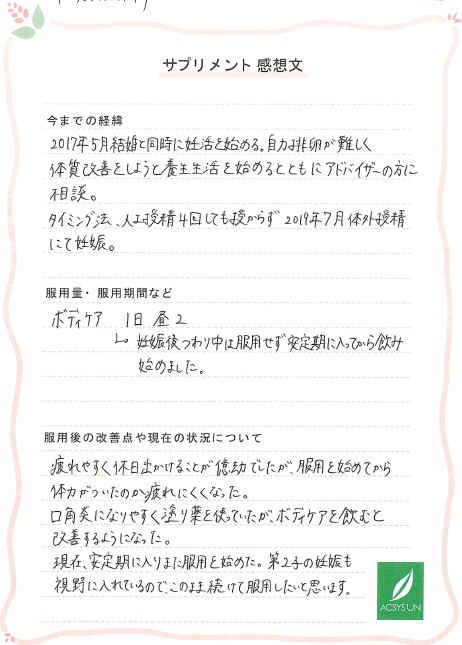 サプリメント 感想文
今までの経緯
2017年5月結婚と同時に妊活を始める。自力排卵が難しく
体質改善をしようと養生生活を始めるとともにアドバイザーの方に
相談。
タイミング法、人工授精4回しても授からず 2019年7月体外授精
にて妊娠。
服用量・服用期間など
ボディケア 1日 昼2
↳ 妊娠後つわり中は服用せず安定期に入ってから飲み
始めました。
服用後の改善点や現在の状況について
疲れやすく休日出かけることが億劫でしたが、服用を始めてから
体力がついたのか疲れにくくなった。
口角炎になりやすく塗り薬を使っていたが、ボディケアを飲むと
改善するようになった。
現在、安定期に入りまた服用を始めた。第2子の妊娠も
視野に入れているので、このまま続けて服用したいと思います。
ACSYS UN